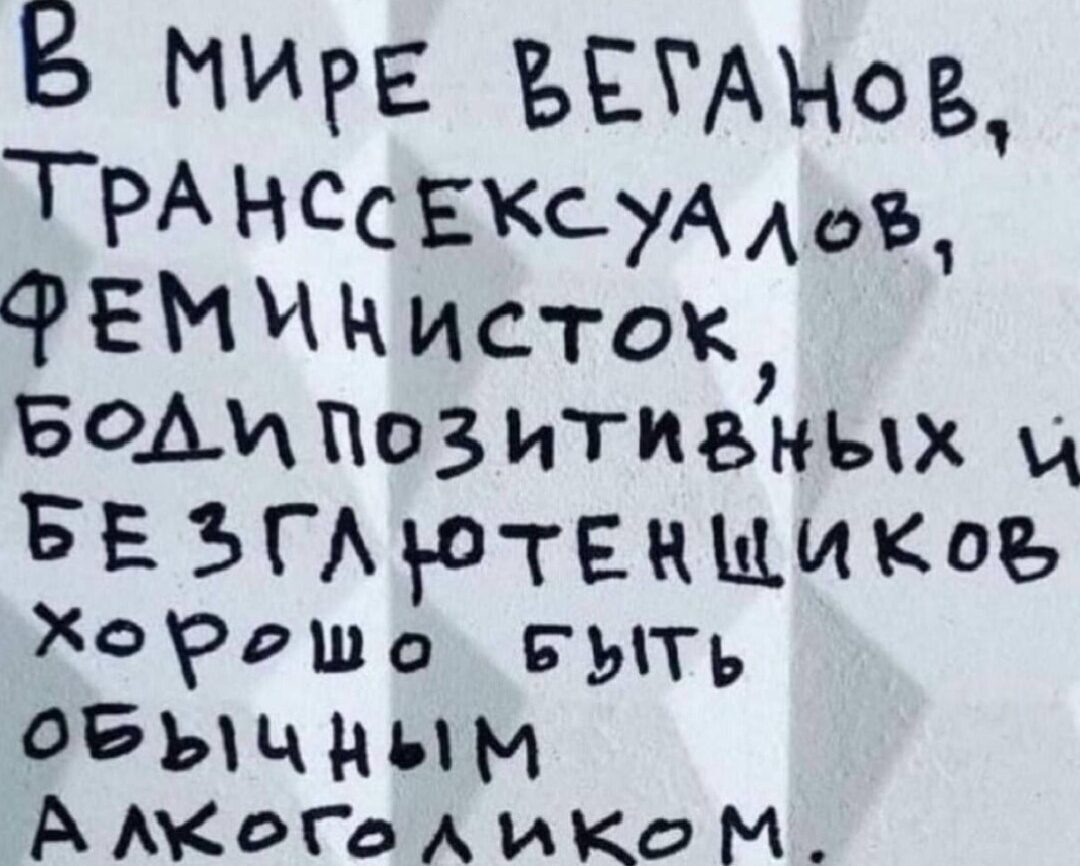 В МИРЕ ВЕГАНОВ,
ТРАНССЕКСУАЛОВ,
ФЕМИНИСТОК,
БОДИПОЗИТИВНЫХ И
БЕЗГЛЮТЕНЩИКОВ
ХОРОШО БЫТЬ
ОБЫЧНЫМ
АЛКОГОЛИКОМ.